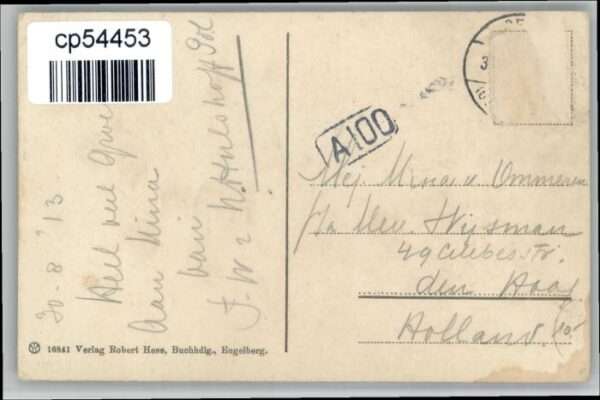 cp54453
30-8 '13
Heel veel Groe
Aan Mina
van
J. W. & N. Hulshoff Pol
A100
Mej Mina v. Ommeren
p/a Mev. Wijsman
49 Celebesstr.
den Haag
Holland.
16841 Verlag Robert Hess, Buchhdlg., Engelberg.